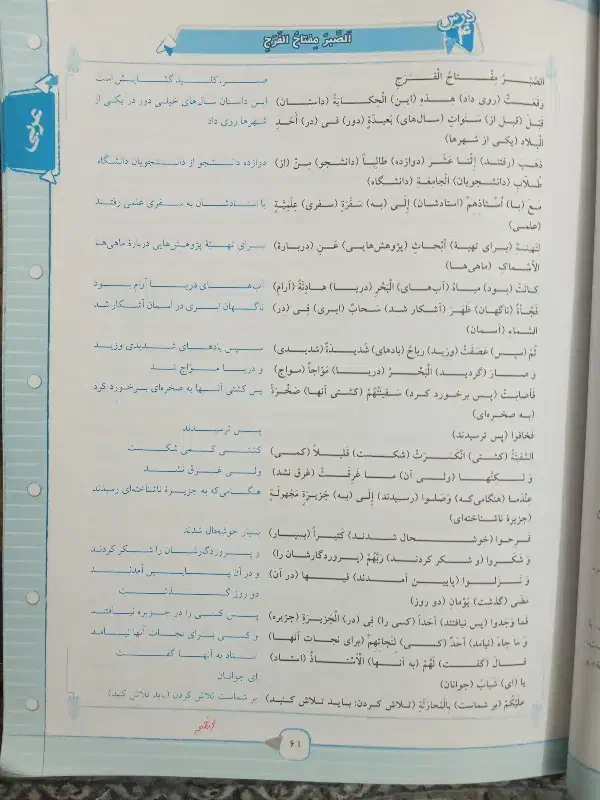 درس ۴
اَلصَّبرُ مِفتاحُ الفَرَجِ
عربی
الصَّبْرُ مِفْتاحُ الْفَرَجِ صبر، کلید گشایش است
وَقَعَتْ (روی داد) هٰذِهِ (این) الْحِکایَةُ (داستان) این داستان سال‌های خیلی دور در یکی از
قَبْلَ (قبل از) سَنَواتٍ (سال‌های) بَعیدَةٍ (دور) فی (در) أَحَدِ شهرها روی داد
الْبِلادِ (یکی از شهرها)
ذَهَبَ (رفتند) اِثْنا عَشَرَ (دوازده) طالِباً (دانشجو) مِنْ (از) دوازده دانشجو از دانشجویان دانشگاه
طُلّابِ (دانشجویان) الْجامِعَةِ (دانشگاه)
مَعَ (با) اُسْتاذِهِمْ (استادشان) إلَی (به) سَفْرَةٍ (سفری) عِلْمِیَّةٍ با استادشان به سفری علمی رفتند
(علمی)
لِتَهیَةِ (برای تهیهٔ) أَبْحاثٍ (پژوهش‌هایی) عَنِ (دربارهٔ) برای تهیهٔ پژوهش‌هایی دربارهٔ ماهی‌ها
الْأَسْماكِ (ماهی‌ها)
کانَتْ (بود) میاهُ (آب‌های) الْبَحْرِ (دریا) هادِئَةً (آرام) آب‌های دریا آرام بود
فَجْأَةً (ناگهان) ظَهَرَ (آشکار شد) سَحابٌ (ابری) فِی (در) ناگهان ابری در آسمان آشکار شد
السَّماءِ (آسمان)
ثُمَّ (سپس) عَصَفَتْ (وزید) ریاحٌ (بادهای) شَدیدَةٌ (شدیدی) سپس بادهای شدیدی وزید
وَ صارَ (گردید) الْبَحْرُ (دریا) مَوّاجاً (مواج) و دریا مواج شد
فَأَصابَتْ (پس برخورد کرد) سَفینَتُهُمْ (کشتی آنها) صَخْرَةً پس کشتی آنها به صخره‌ای برخورد کرد
(به صخره‌ای)
فَخافوا (پس ترسیدند) پس ترسیدند
السَّفینَةُ (کشتی) انْکَسَرَتْ (شکست) قَلیلاً (کمی) کشتی کمی شکست
وَ لٰکِنَّها (ولی آن) ما غَرِقَتْ (غرق نشد) ولی غرق نشد
عِنْدَما (هنگامی‌که) وَصَلوا (رسیدند) إلَی (به) جَزیرَةٍ مَجْهولَةٍ هنگامی‌که به جزیرهٔ ناشناخته‌ای رسیدند
(جزیرهٔ ناشناخته‌ای)
فَرِحوا (خوشحال شدند) کَثیراً (بسیار) بسیار خوشحال شدند
وَ شَکَروا (و شکر کردند) رَبَّهُمْ (پروردگارشان را) و پروردگارشان را شکر کردند
وَ نَزَلوا (پایین آمدند) فیها (در آن) و در آن پایین آمدند
مَضَی (گذشت) یَوْمانِ (دو روز) دو روز گذشت
فَما وَجَدوا (پس نیافتند) أَحَداً (کسی را) فِی (در) الْجَزیرَةِ (جزیره) پس کسی را در جزیره نیافتند
وَ ما جاءَ (نیامد) أَحَدٌ (کسی) لِنَجاتِهِمْ (برای نجات آنها) و کسی برای نجات آنها نیامد
قالَ (گفت) لَهُمْ (به آنها) الْأُسْتاذُ (استاد) استاد به آنها گفت
یا (ای) شَبابُ (جوانان) ای جوانان
عَلَیْکُمْ (بر شماست) بِالْمُحاوَلَةِ (تلاش کردن: باید تلاش کنید) بر شماست تلاش کردن (باید تلاش کنید)
۶۱